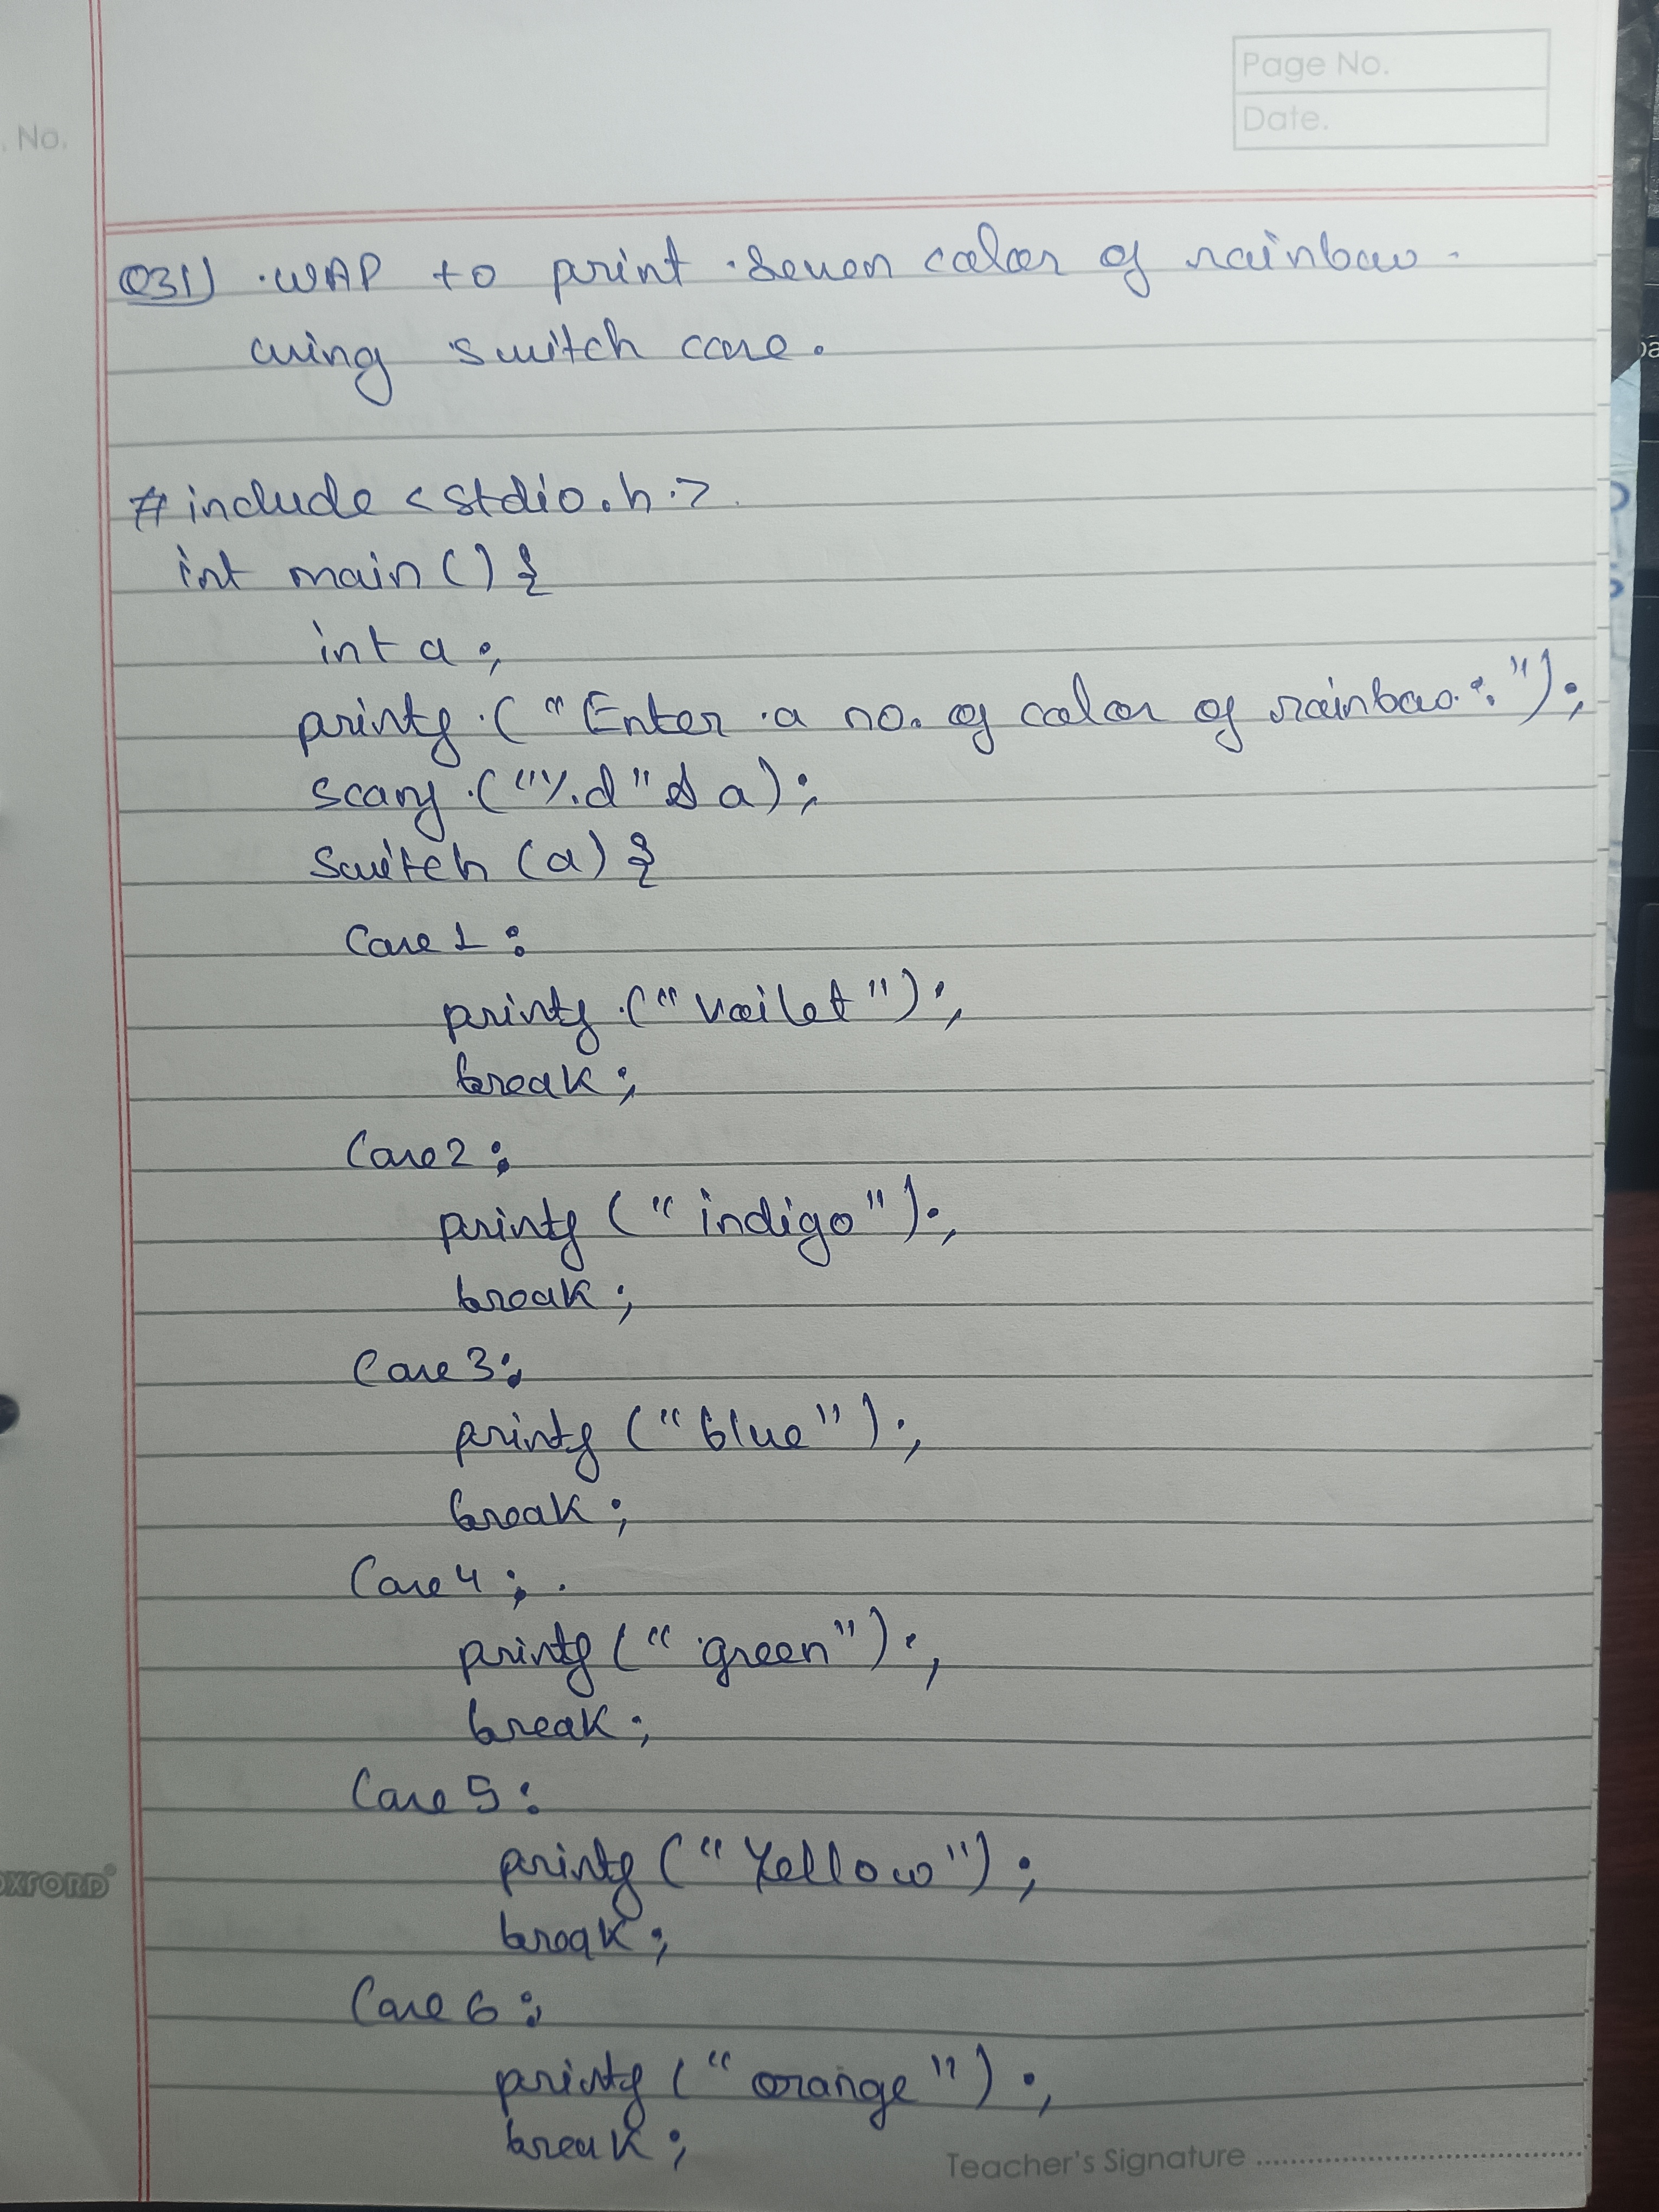 Page No.
Date.
. No.
Q31) WAP to print seven color of rainbow
using switch case.
# include <stdio.h>
int main () {
int a ;
printf ("Enter a no. of color of rainbow : ");
scanf ("%d" & a);
switch (a) {
Case 1 :
printf ("Voilet");
break ;
Case 2 :
printf (" indigo");
break ;
Case 3 :
printf ("blue");
break ;
Case 4 :
printf (" green");
break ;
Case 5 :
printf (" Yellow");
break ;
Case 6 :
printf (" orange ");
break ;
OXFORD
Teacher's Signature